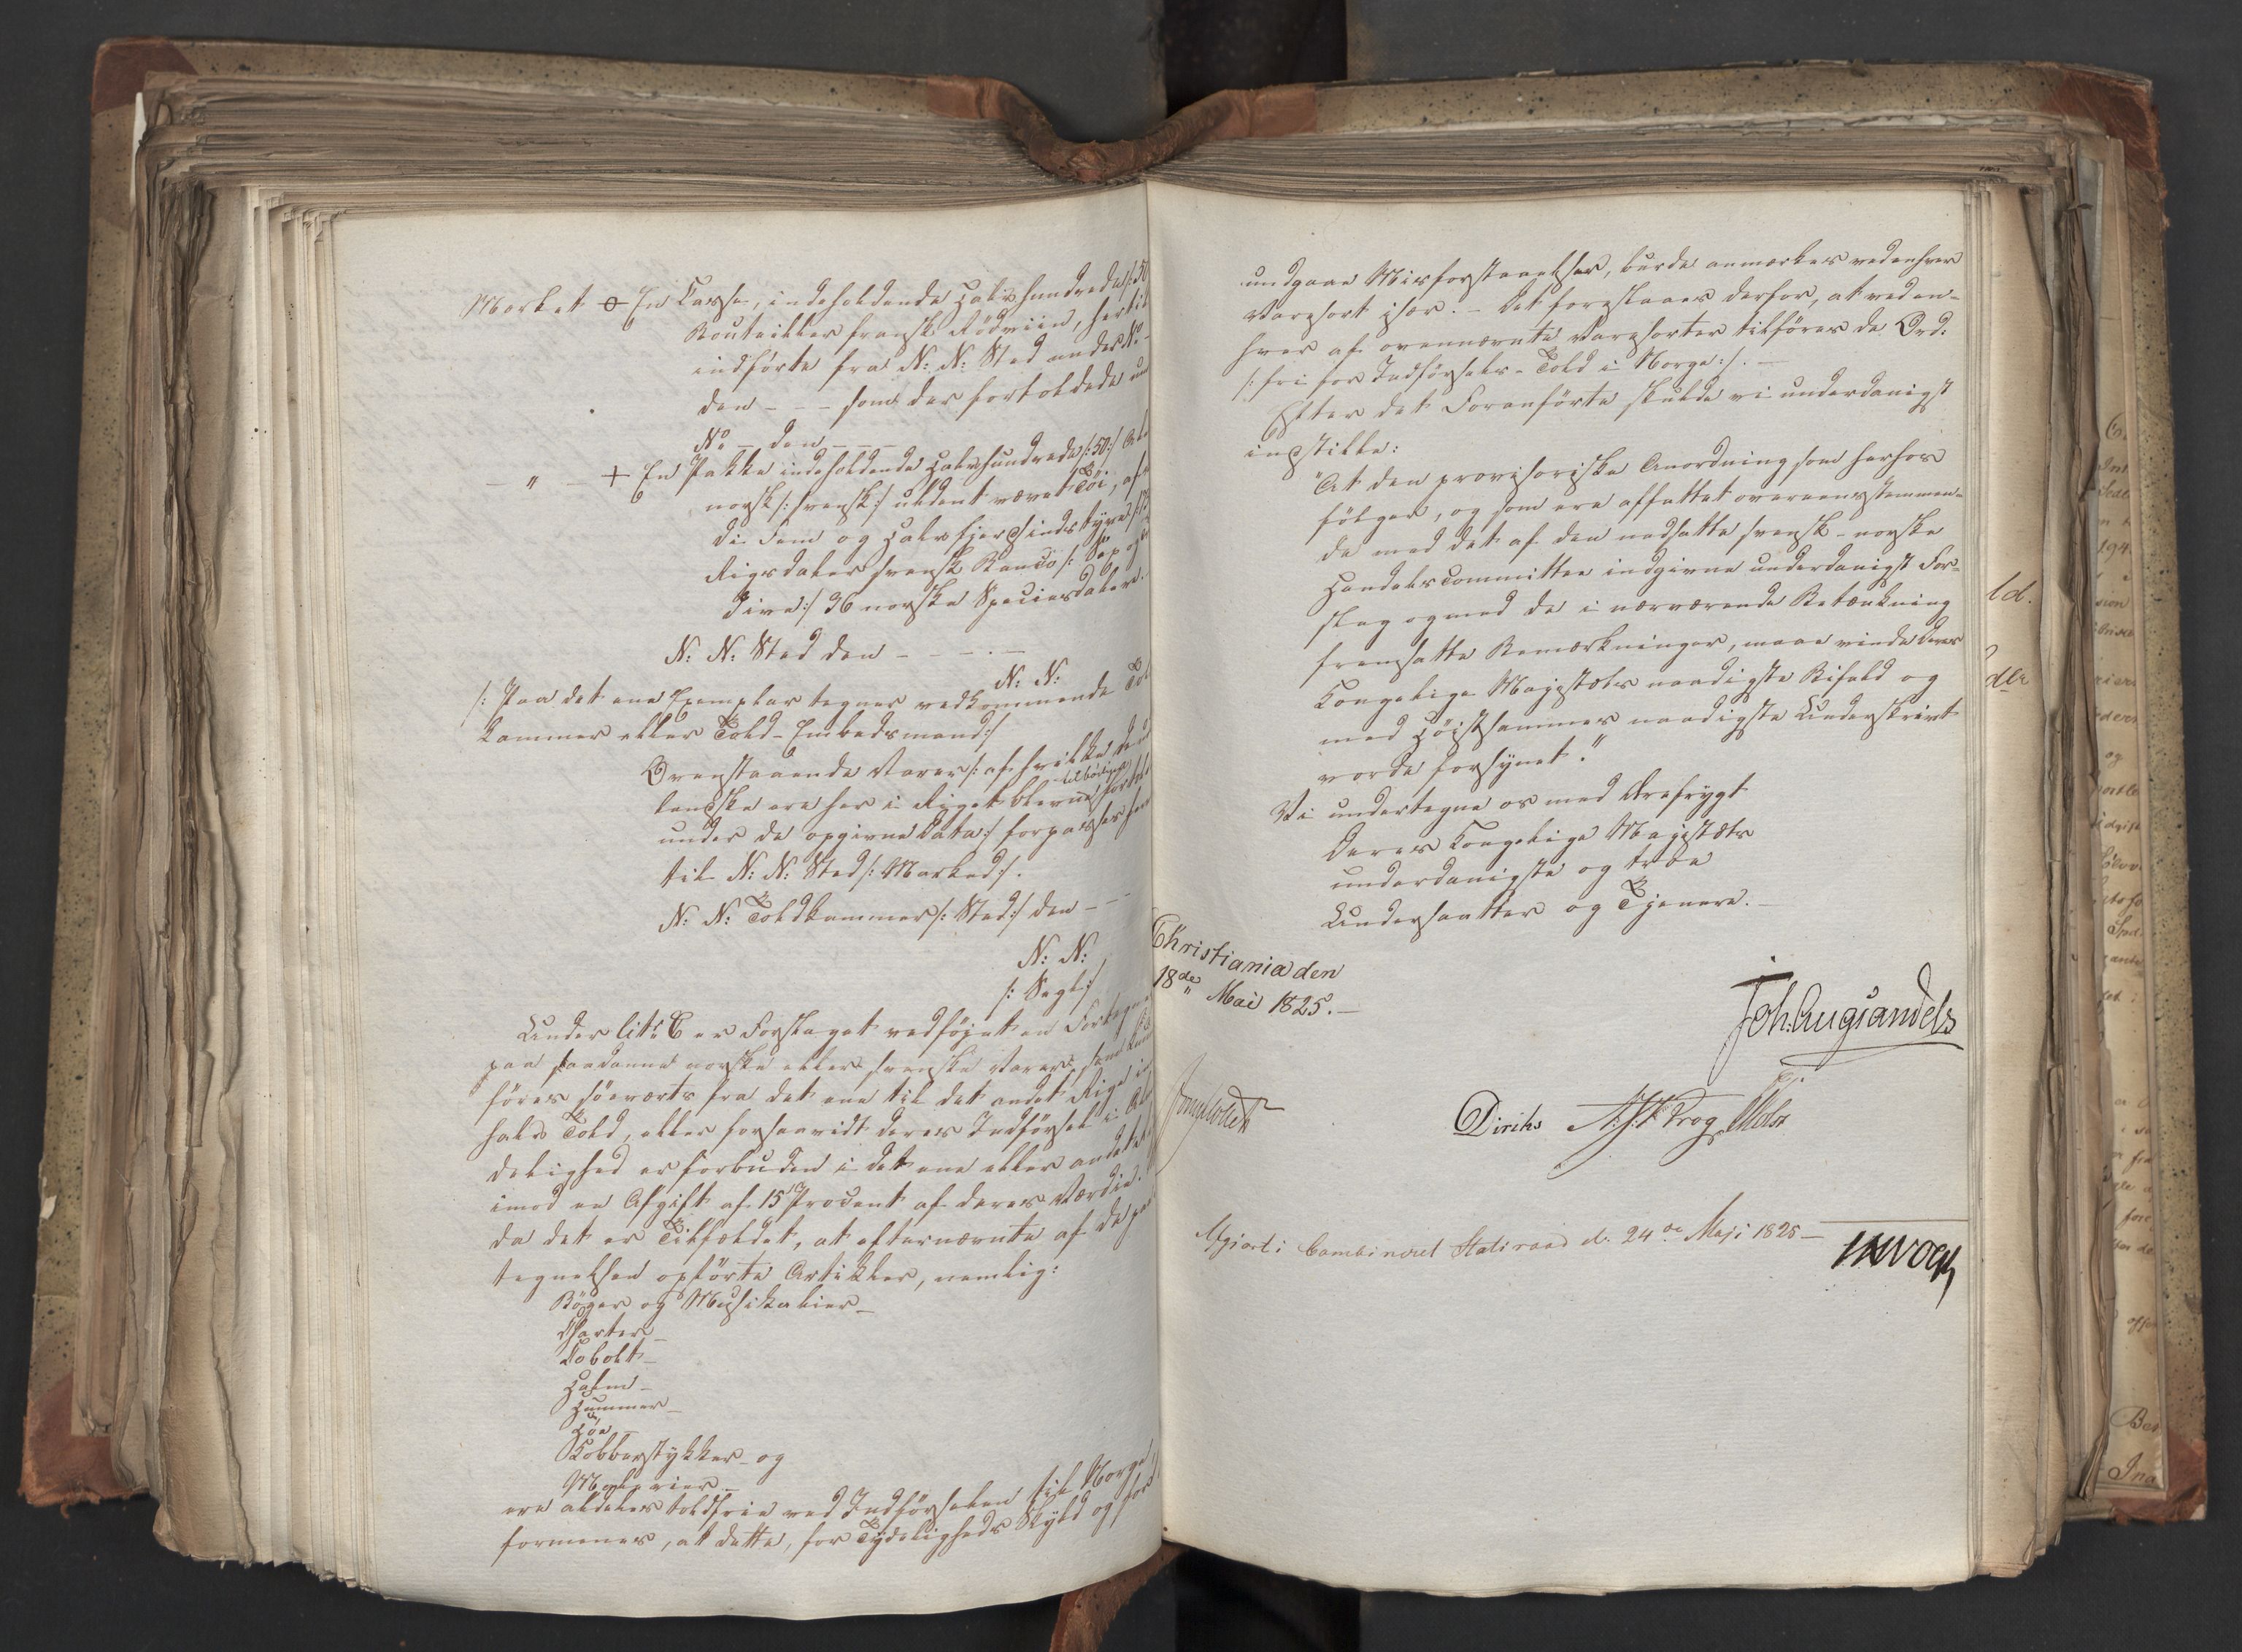 Market O En Casse, indeholdende Halvhundrede /: 50
Bouteiller fransk Rödviin, hertil
indförte fra N: N: Sted under No
den - - - som der fortoldede un
No - den - - -
- " - + En Pakke indeholdende Halvhundrede /: 50 :/ Ale
norsk /: svensk :/ uldent vævet Töi, af
di Fem og Halvfjersindstyve /: 75
Rigsdaler svensk Banco /: Sex og
dive :/ 36 norske Speciesdaler.
N: N: Sted den - - - - -
N: N:
/: Paa det ene Exemplar tegner vedkommende Told
kammer eller Told-Embedsmand :/
Ovenstaaende Varer /: af hvilke de u
landske ere her i Riget blevne tilbörligen fortold
under de opgivne Data :/ forpasses her
til N: N: Sted /: Marked :/.
N: N: Toldkammer /: Sted :/ den - - -
N: N:
/: Segl :/
Under Litr. C er Forslaget vedföjet en Fortegn
paa saadanne norske eller svenske Varer, som kun
föres söeværts fra det ene til det andet Rige im
halv Told, eller forsaavidt deres Indförsel i Al
delighed er forbuden i det ene eller andet
imod en Afgift af 15 Procent af deres Værdie.
da det er Tilfældet, at efternævnte af de paa
tegnelsen opförte Artikler, nemlig:
Böger og Musikalier -
Charter -
Cobolt -
Halm -
Hummer -
Höe -
Kobberstykker - og
Malerier -
ere aldeles toldfrie ved Indförselen til Norge,
formenes, at dette, for Tydeligheds Skyld og for
undgaae Misforstaaelser, burde anmærkes ved enhver
Varesort især. - Det foreslaaes derfor, at ved en-
hver af ovennævnte Varesorter tilföres de Ord:
/: fri for Indförsels-Told i Norge :/. -
Efter det Foranförte skulde vi underdanigst
indstille:
"At den provisoriske Anordning som herhos
fölger, og som er affattet overeensstemmen-
de med det af den nedsatte svensk-norske
Handelscommittee indgivne underdanigst For-
slag og med de i nærværende Betænkning
fremsatte Bemærkninger, maae vinde Deres
Kongelige Majestæts naadigste Bifald og
med Höistsammes naadigste Underskrivt
vorde forsynet."
Vi undertegne os med Ærefrygt
Deres Kongelige Majestæts
underdanigste og troe
Undersaatter og Tjenere. -
Christiania den
18de Mai 1825. -
Joh. Aug. Sandels
Diriks Krog
Afgiort i Combineret Statsraad d. 24de Maji 1825 -